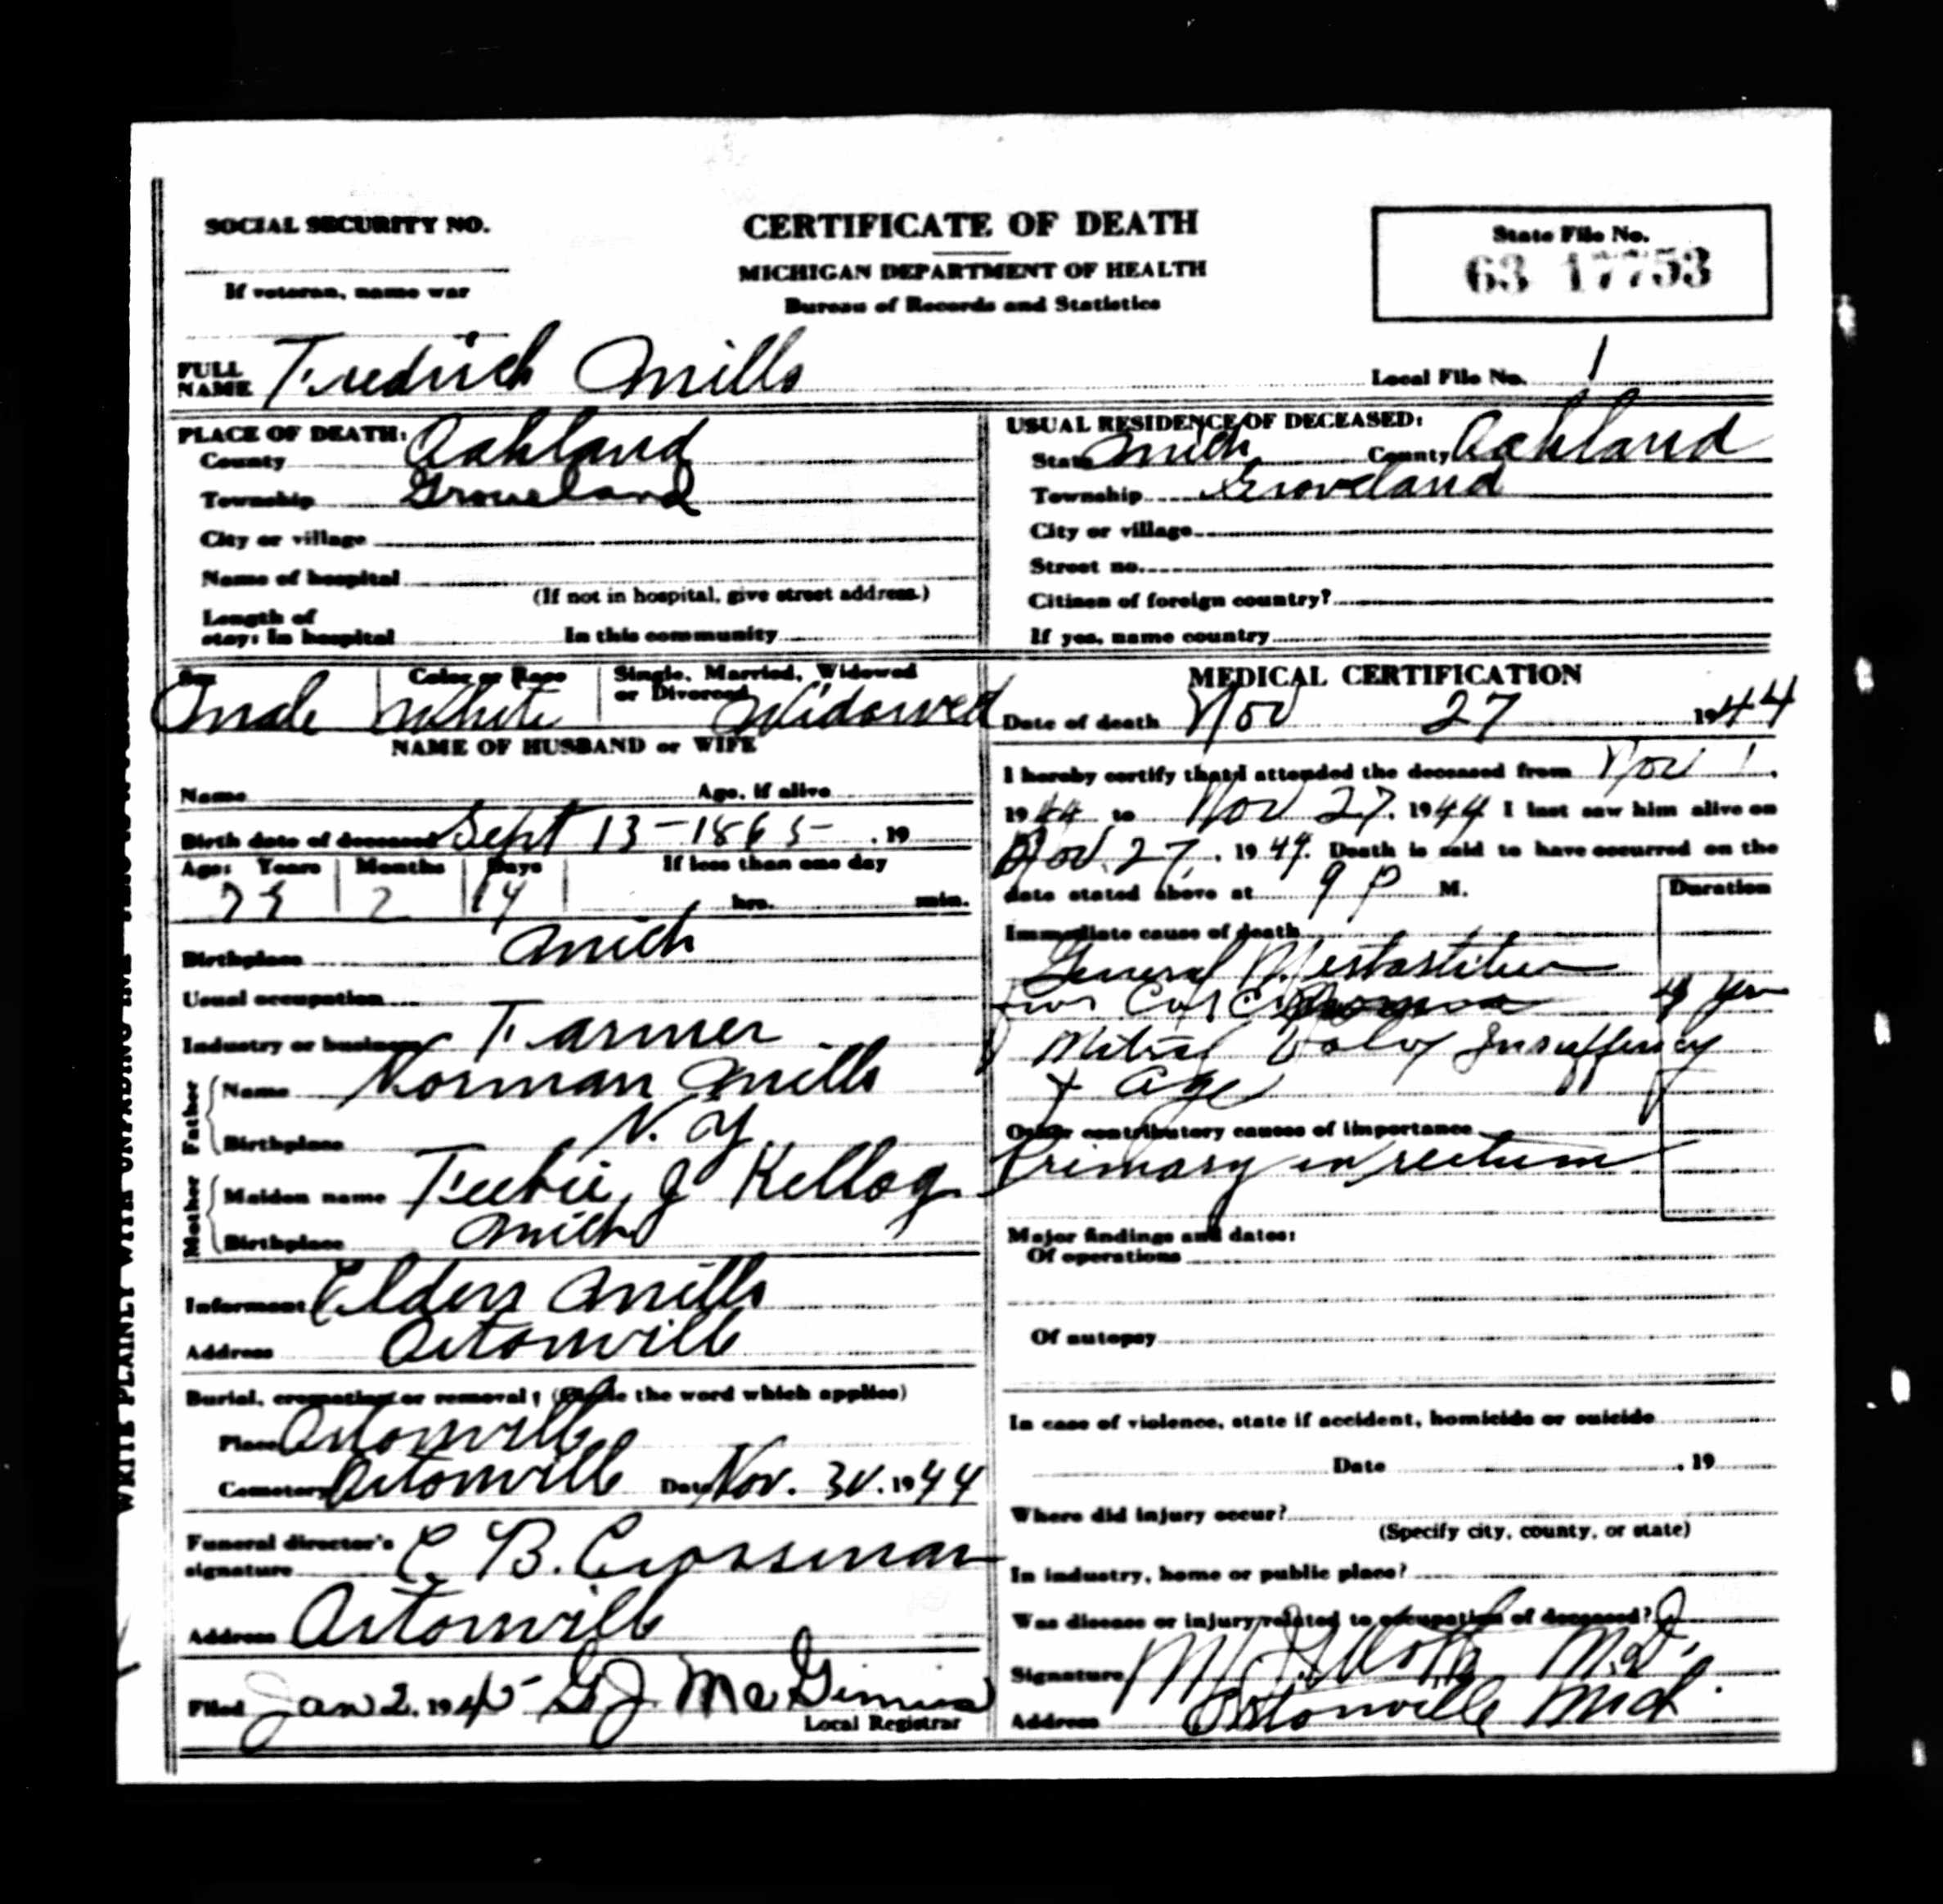 SOCIAL SECURITY NO.
If veteran, name war
CERTIFICATE OF DEATH
MICHIGAN DEPARTMENT OF HEALTH
Bureau of Records and Statistics
State File No.
63 17753
FULL NAME Fredrick Mills
Local File No. 1
PLACE OF DEATH:
County Oakland
Township Groveland
City or village
Name of hospital
(If not in hospital, give street address.)
Length of stay: In hospital In this community
USUAL RESIDENCE OF DECEASED:
State Mich County Oakland
Township Groveland
City or village
Street no.
Citizen of foreign country?
If yes, name country
Sex Male Color or Race White Single, Married, Widowed or Divorced Widowed
NAME OF HUSBAND or WIFE
Name Age, if alive
Birth date of deceased Sept 13-1865 , 19
Age: Years Months Days If less than one day
79 2 14 hrs. min.
Birthplace Mich
Usual occupation
Industry or business Farmer
Father
Name Norman Mills
Birthplace N. Y
Mother
Maiden name J Kellog
Birthplace Mich
Informant Mills
Address Ortonville
Burial, cremation or removal; (Circle the word which applies)
Place Ortonville
Cemetery Ortonville Date Nov. 30, 1944
Funeral director's signature C B. Crossman
Address Ortonville
Filed Jan 2, 1945 G J McGinnis
Local Registrar
MEDICAL CERTIFICATION
Date of death Nov 27 1944
I hereby certify that I attended the deceased from Nov 1,
1944 to Nov 27, 1944 I last saw him alive on
Nov. 27, 1944. Death is said to have occurred on the
date stated above at 9 P M.
Duration
Immediate cause of death
General
from Carcinoma 4 yrs
Mitral Valv Insuffency
+ age
Other contributory causes of importance
Primary in rectum
Major findings and dates:
Of operations
Of autopsy
In case of violence, state if accident, homicide or suicide
Date , 19
Where did injury occur?
(Specify city, county, or state)
In industry, home or public place?
Was disease or injury related to occupation of deceased?
Signature M.D.
Address Ortonville Mich.
WRITE PLAINLY WITH UNFADING INK